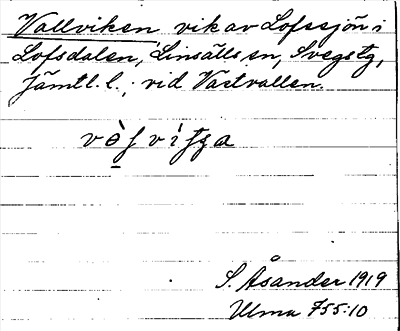 Vallviken vik av Lofssjön i
Lofsdalen, Linsälls sn, Svegs tg,
Jämtl. l., vid Västvallen.
S. Åsander 1919
Ulma 755:10